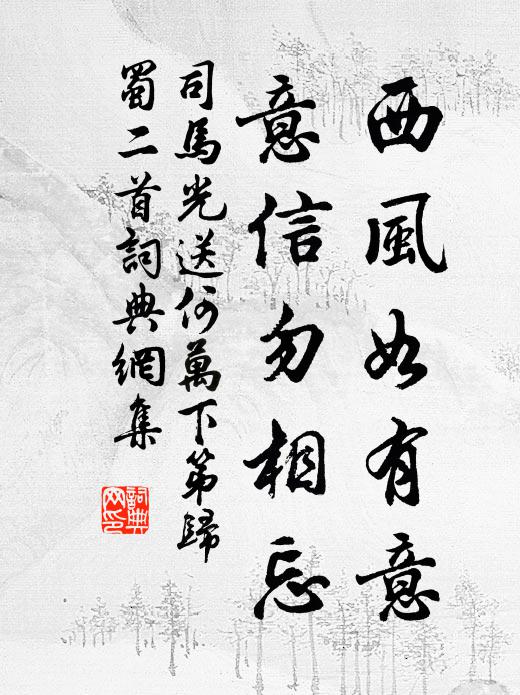 西風如有意
意信勿相忘
司馬光送何萬下第歸
蜀二首詞典網集
詞典
網印